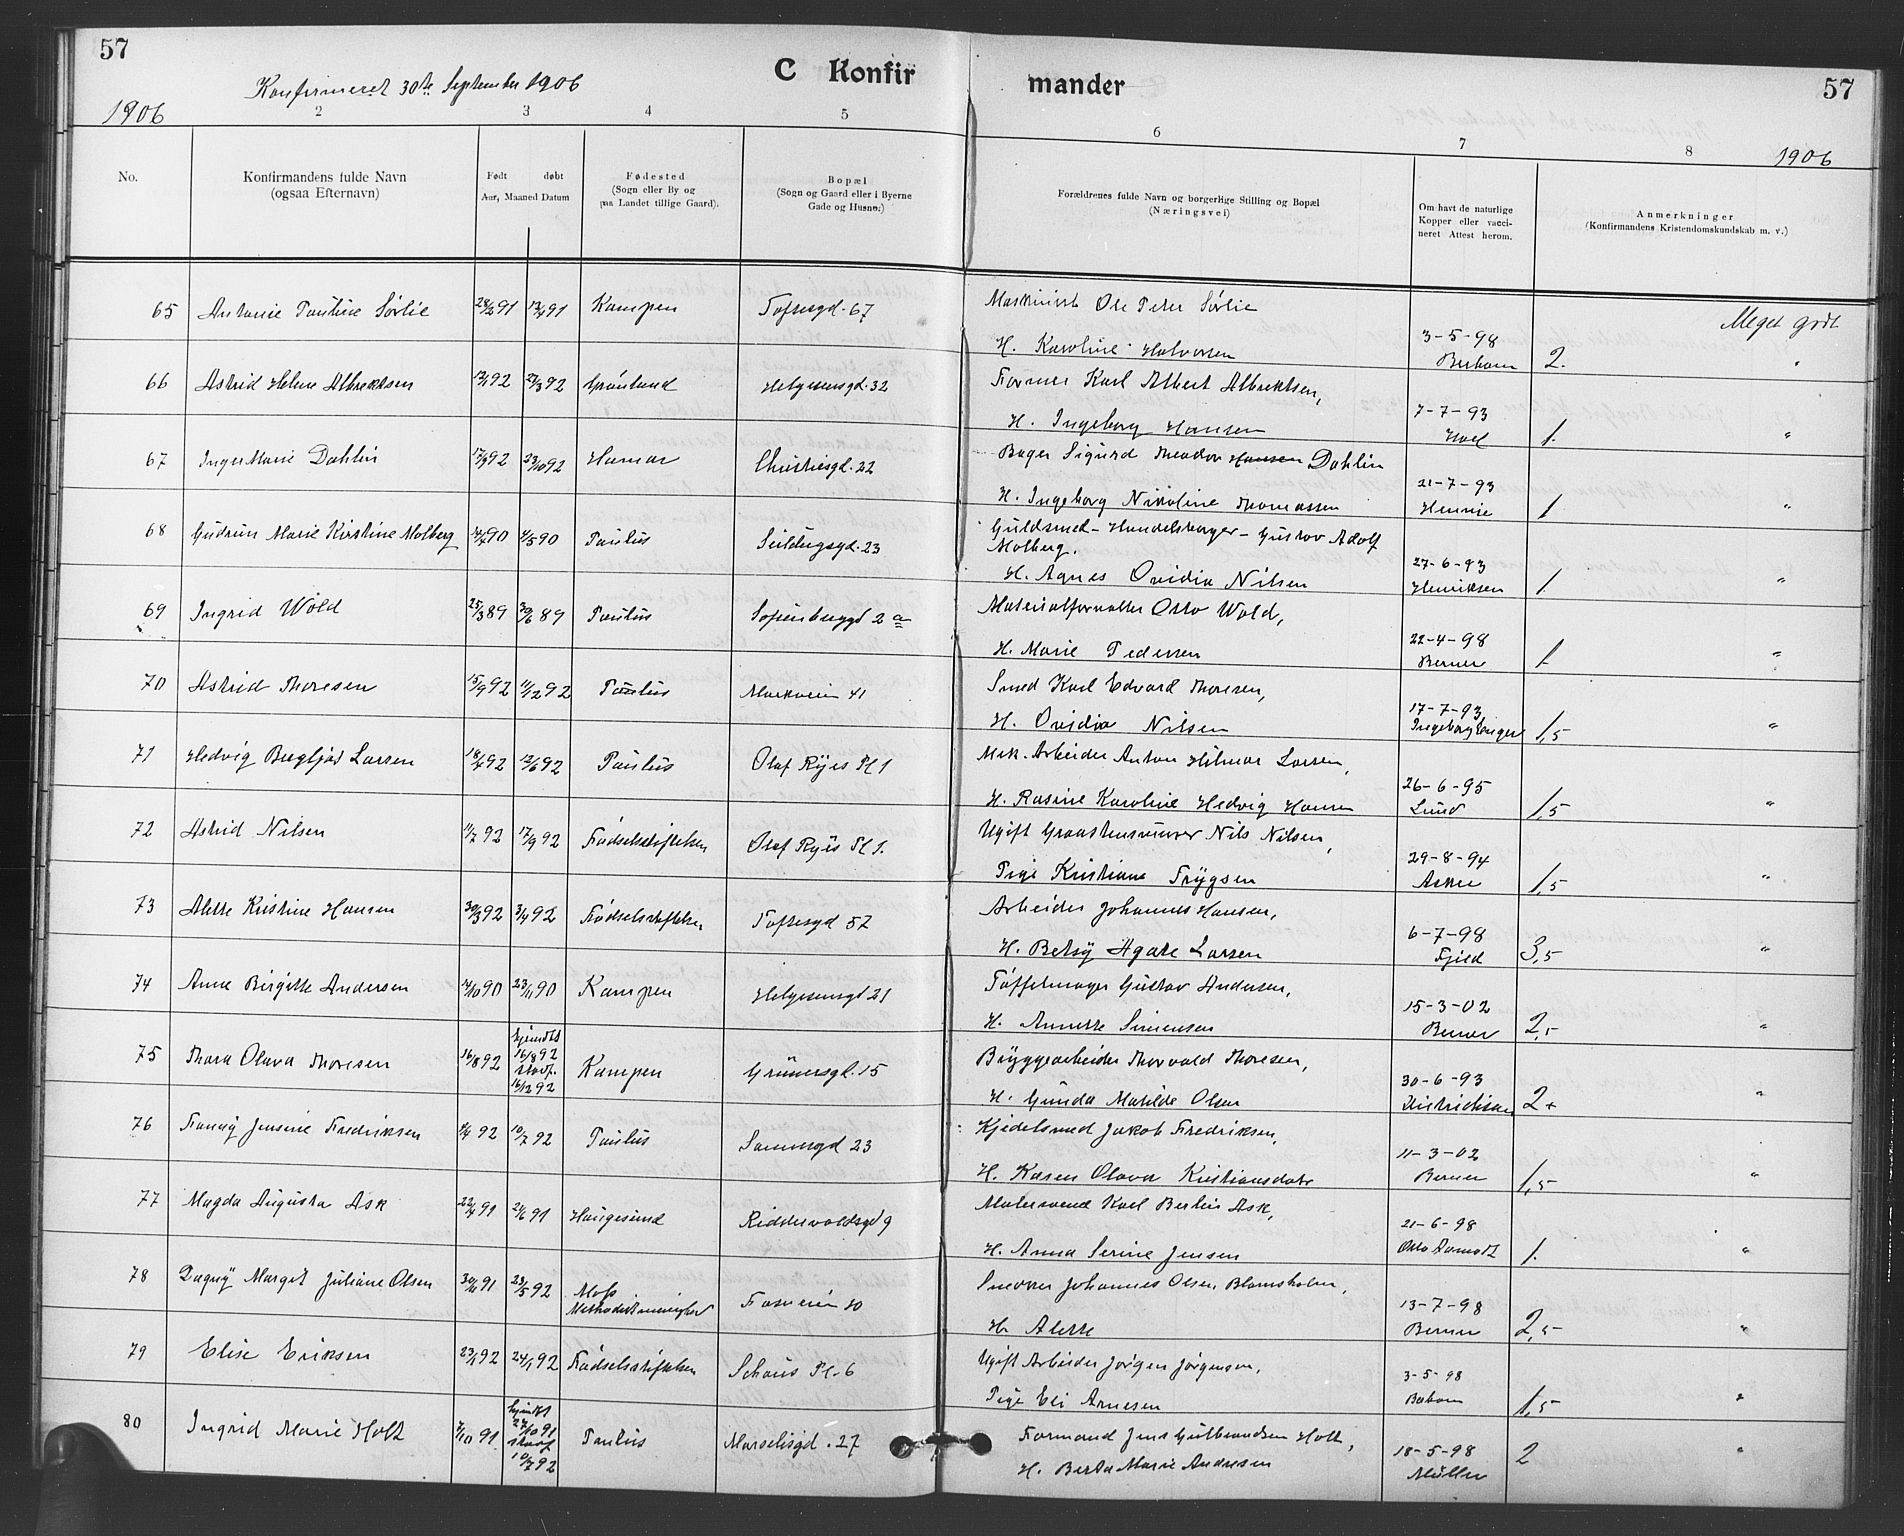 57
C Konfirmander
57
Konfirmeret 30te September 1906
1906
2
3
4
5
6
7
8
1906
No.
Konfirmandens fulde Navn
(ogsaa Efternavn)
Født døbt
Aar, Maaned Datum
Fødested
(Sogn eller By og
paa Landet tillige Gaard).
Bopæl
(Sogn og Gaard eller i Byerne
Gade og Husno.)
Forældrenes fulde Navn og borgerlige Stilling og Bopæl
(Næringsvei)
Om havt de naturlige
Kopper eller vacci-
neret Attest herom.
Anmerkninger
(Konfirmandens Kristendomskundskab m. v.)
65 Antonie Pauline Sørlie 91 91 Kampen Toftesgd. 67 Maskinist Ole Peter Sørlie Meget godt
H. Karoline Halvorsen 3-5-98 2. "
66 Astrid Helene Albrektsen 92 92 Grønland Helgesensgd. 32 Former Karl Albert Albrektsen,
H. Ingeborg Hansen 7-7-93 Hoel 1. "
67 Inger Marie Dahlin 92 23/10 92 Hamar Christiesgd. 22 Bager Sigurd Theodor Hansen Dahlin
H. Ingeborg Nikoline Thomassen 21-7-93 1 "
68 Gudrun Marie Kirstine Molberg 90 90 Paulus Seildugsgd. 23 Guldsmed- Handelsborger- Gustav Adolf
Molberg.
H. Agnes Ovidia Nilsen 27-6-93 Henriksen 1 "
69 Ingrid Wold 25/3 89 30/6 89 Paulus Sofienberggd 2 a Materialforvalter Otto Wold,
H. Marie Pedersen 22-4-98 Berner 1 "
70 Astrid Thoresen 15/9 92 11/12 92 Paulus Markveien 41 Smed Karl Edvard Thoresen,
H. Ovidia Nilsen 17-7-93 Ingeborg 1,5 "
71 Hedvig Bergljot Larsen 18/4 92 12/6 92 Paulus Olaf Ryes Pl 1 Mek. Arbeider Anton Hilmar Larsen,
H. Rasine Karoline Hedvig Hansen 26-6-95 Lund 1,5 "
72 Astrid Nilsen 11/7 92 17/9 92 Fødselsstiftelsen Olaf Ryes Pl 1. Ugift Graastensmurer Nils Nilsen,
Pige Kristiane Trygsen 29-8-94 Asker 1,5 "
73 Alette Kristine Hansen 30/3 92 3/4 92 Fødselsstiftelsen Toftesgd 57 Arbeider Johannes Hansen,
H. Betsy Agate Larsen 6-7-98 Fjeld 3,5 "
74 Anna Birgitte Andersen 90 23/11 90 Kampen Helgesensgd 21 Tøffelmager Gustav Andersen,
H. Annette Simensen 15-3-02 Berner 2,5 "
75 Thora Olava Thoresen 16/8 92 hjemdøbt
16/8 92
stadf.
92 Kampen Grünersgd. 15 Bryggearbeider Thorvald Thoresen,
H. Gunda Matilde Olsen 30-6-93 2+ "
76 Fanny Jensine Fredriksen 92 10/7 92 Paulus Sannersgd 23 Kjedelsmed Jakob Fredriksen,
H. Karen Olava Kristiansdatr 11-3-02 Berner 1,5 "
77 Magda Augusta Ask 22/4 91 21/6 91 Haugesund Riddervoldsgd 9 Malersvend Karl Bertin Ask,
H. Anna Serine Jensen 21-6-98 Otto 1. "
78 Dagny Margit Juliane Olsen 91 23/5 92 Moss
Methodistmenighet Fossveien 20 Snedker Johannes Olsen Blomsholm,
H. Alette 13-7-98 Berner 2,5 "
79 Elise Eriksen 23/1 92 24/1 92 Fødselsstiftelsen Schous Pl. 6 Ugift Arbeider Jørgen Jørgensen,
Pige Eli Arnesen 3-5-98 1,5 "
80 Ingrid Marie Holt 7/10 91 hjemdøbt
27/10 91
stadf
10/7 92 Paulus Marselisgd. 27 Formand Jens Gulbrandsen Holt,
H. Berta Marie Andresen 18-5-98 Müller 2 "